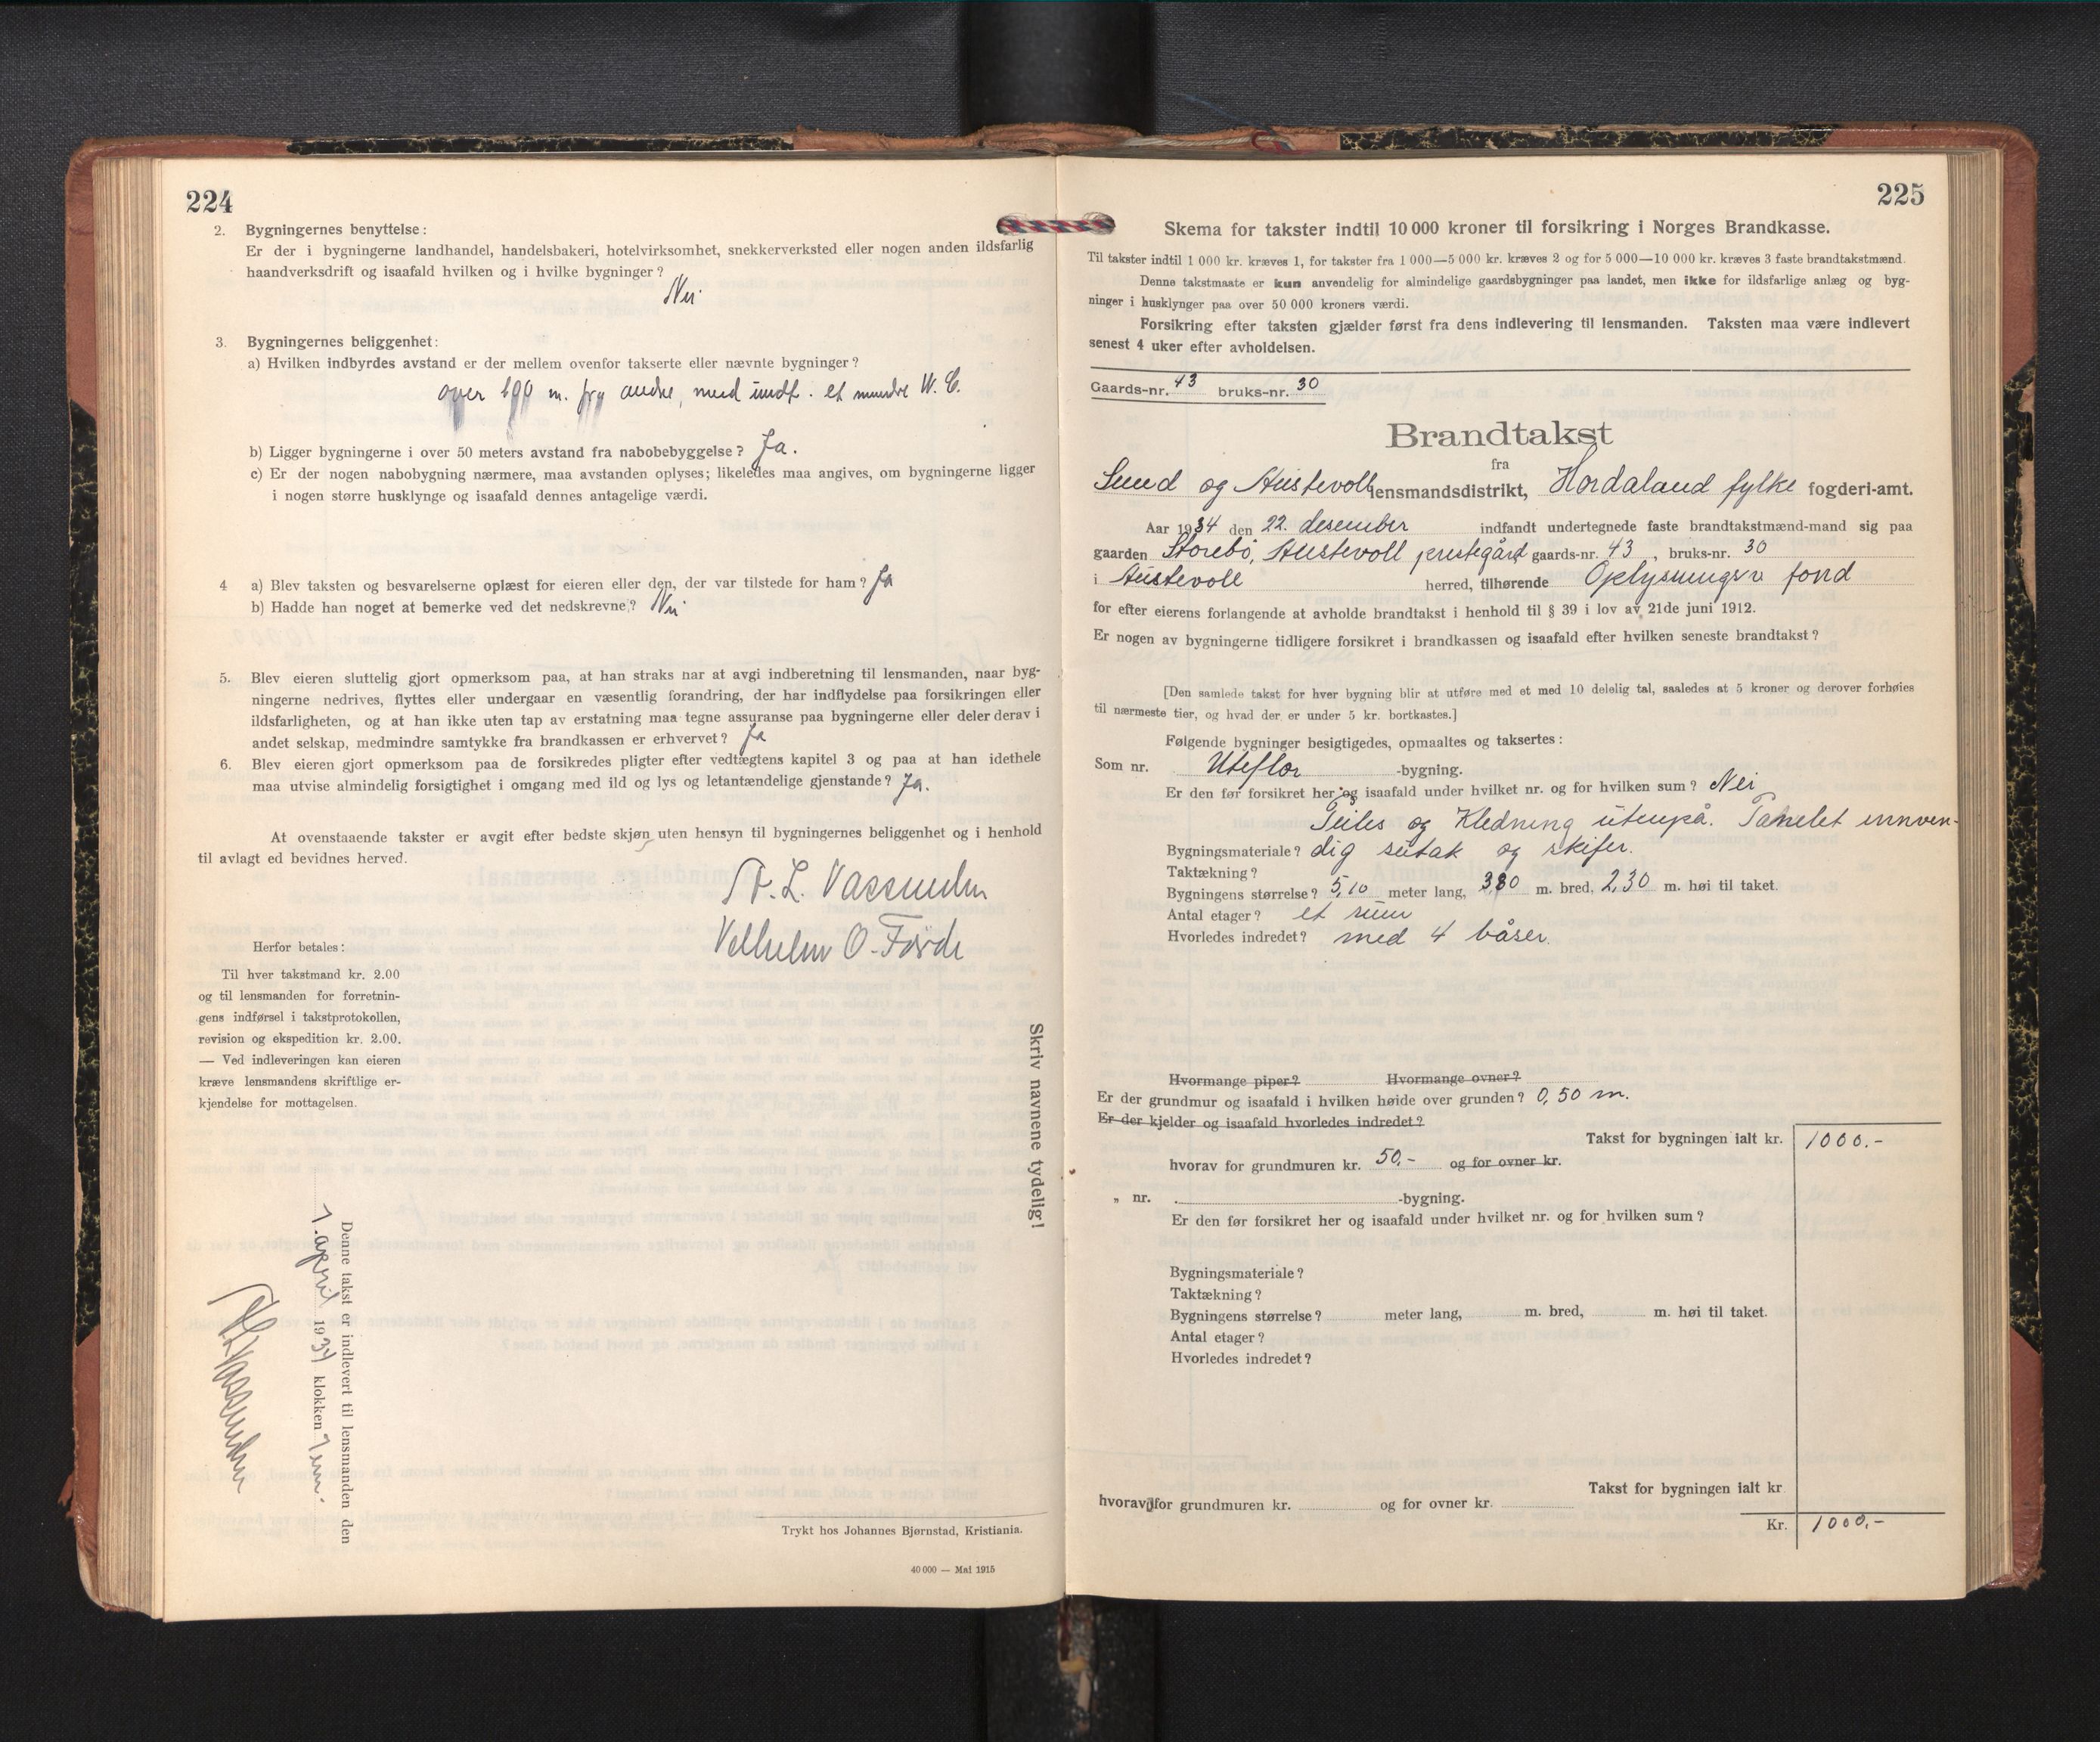 224
2. Bygningernes benyttelse:
Er der i bygningerne landhandel, handelsbakeri, hotelvirksomhet, snekkerverksted eller nogen anden ildsfarlig
haandverksdrift og isaafald hvilken og i hvilke bygninger?
Nei
3. Bygningernes beliggenhet:
a) Hvilken indbyrdes avstand er der mellem ovenfor takserte eller nævnte bygninger?
over 100 m. fra andre, med undt. et mindre W. C.
b) Ligger bygningerne i over 50 meters avstand fra nabobebyggelse? Ja.
c) Er der nogen nabobygning nærmere, maa avstanden oplyses; likeledes maa angives, om bygningerne ligger
i nogen større husklynge og isaafald dennes antagelige værdi.
4 a) Blev taksten og besvarelserne oplæst for eieren eller den, der var tilstede for ham? Ja
b) Hadde han noget at bemerke ved det nedskrevne? Nei
5. Blev eieren sluttelig gjort opmerksom paa, at han straks har at avgi indberetning til lensmanden, naar byg-
ningerne nedrives, flyttes eller undergaar en væsentlig forandring, der har indflydelse paa forsikringen eller
ildsfarligheten, og at han ikke uten tap av erstatning maa tegne assuranse paa bygningerne eller deler derav i
andet selskap, medmindre samtykke fra brandkassen er erhvervet? Ja
6. Blev eieren gjort opmerksom paa de forsikredes pligter efter vedtægtens kapitel 3 og paa at han idethele
maa utvise almindelig forsigtighet i omgang med ild og lys og letantændelige gjenstande? Ja.
At ovenstaaende takster er avgit efter bedste skjøn uten hensyn til bygningernes beliggenhet og i henhold
til avlagt ed bevidnes herved.
L. Vassenden
O. Förde
Herfor betales:
Til hver takstmand kr. 2.00
og til lensmanden for forretnin-
gens indførsel i takstprotokollen,
revision og ekspedition kr. 2.00.
— Ved indleveringen kan eieren
kræve lensmandens skriftlige er-
kjendelse for mottagelsen.
Skriv navnene tydelig!
Denne takst er indlevert til lensmanden den
7. april 1934 klokken
Trykt hos Johannes Bjørnstad, Kristiania.
40 000 — Mai 1915
225
Skema for takster indtil 10 000 kroner til forsikring i Norges Brandkasse.
Til takster indtil 1 000 kr. kræves 1, for takster fra 1 000—5 000 kr. kræves 2 og for 5 000—10 000 kr. kræves 3 faste brandtakstmænd.
Denne takstmaate er kun anvendelig for almindelige gaardsbygninger paa landet, men ikke for ildsfarlige anlæg og byg-
ninger i husklynger paa over 50 000 kroners værdi.
Forsikring efter taksten gjælder først fra dens indlevering til lensmanden. Taksten maa være indlevert
senest 4 uker efter avholdelsen.
Gaards-nr. 43 bruks-nr. 30
Brandtakst
fra
Sund og Austevoll lensmandsdistrikt, Hordaland fylke fogderi-amt.
Aar 1934 den 22. desember indfandt undertegnede faste brandtakstmænd-mand sig paa
gaarden Storebø, Austevoll prestegård gaards-nr. 43, bruks-nr. 30
i Austevoll herred, tilhørende Oplysningsv fond
for efter eierens forlangende at avholde brandtakst i henhold til § 39 i lov av 21de juni 1912.
Er nogen av bygningerne tidligere forsikret i brandkassen og isaafald efter hvilken seneste brandtakst?
[Den samlede takst for hver bygning blir at utføre med et med 10 delelig tal, saaledes at 5 kroner og derover forhøies
til nærmeste tier, og hvad der er under 5 kr. bortkastes.]
Følgende bygninger besigtigedes, opmaaltes og taksertes:
Som nr. Uteflor -bygning.
Er den før forsikret her og isaafald under hvilket nr. og for hvilken sum? Nei
og Kledning utenpå. Panelet innven-
Bygningsmateriale? dig sutak og skifer.
Taktækning?
Bygningens størrelse? 5,10 meter lang, 3,80 m. bred, 2,30 m. høi til taket.
Antal etager? et rum
Hvorledes indredet? med 4 båser.
Hvormange piper? Hvormange ovner?
Er der grundmur og isaafald i hvilken høide over grunden? 0,50 m.
Er der kjelder og isaafald hvorledes indredet?
Takst for bygningen ialt kr. 1000.-
hvorav for grundmuren kr. 50,- og for ovner kr.
„ nr. -bygning.
Er den før forsikret her og isaafald under hvilket nr. og for hvilken sum?
Bygningsmateriale?
Taktækning?
Bygningens størrelse? meter lang, m. bred, m. høi til taket.
Antal etager?
Hvorledes indredet?
Takst for bygningen ialt kr
hvorav for grundmuren kr. og for ovner kr.
Kr. 1000,-